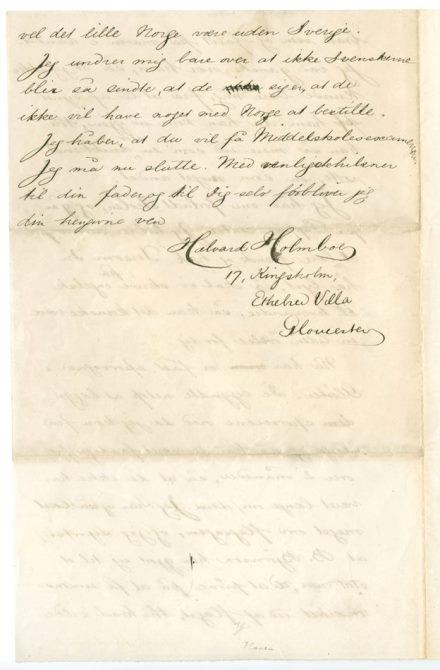 vel det lille Norge være uden Sverige.
Jeg undrer mig bare over at ikke Svenskerne
blir så sindte, at de siger, at de
ikke vil have noget med Norge at bestille.
Jeg håber, at du vil få Middelskoleexamen,
Jeg må nu slutte. Med venligste hilsner
til din fader og til Dig selv forbliver jeg
din hengivne ven
Halvard Holmboe
17, Kingsholm,
Ethelred Villa
Gloucester